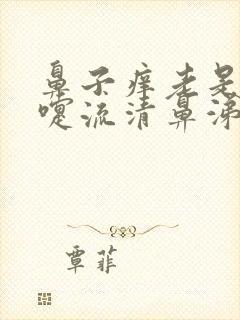 鼻子痒老是
嚏流清鼻涕
覃菲